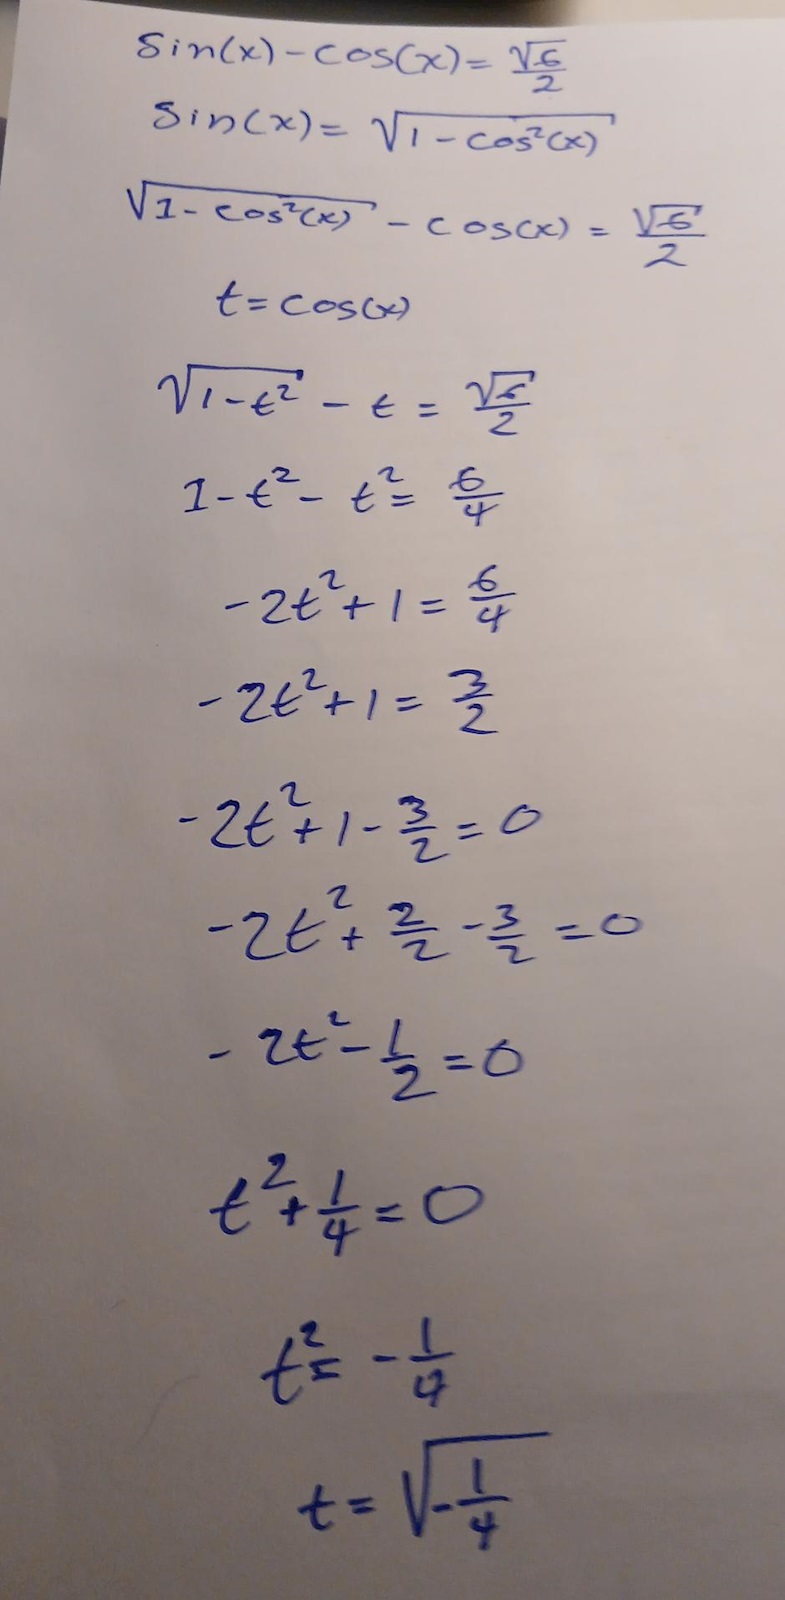 sin(x) - cos(x) = √6/2
sin(x) = √(1 - cos²(x))
√(1 - cos²(x)) - cos(x) = √6/2
t = cos(x)
√(1 - t²) - t = √6/2
1 - t² - t² = 6/4
-2t² + 1 = 6/4
-2t² + 1 = 3/2
-2t² + 1 - 3/2 = 0
-2t² + 2/2 - 3/2 = 0
-2t² - 1/2 = 0
t² + 1/4 = 0
t² = -1/4
t = √(-1/4)